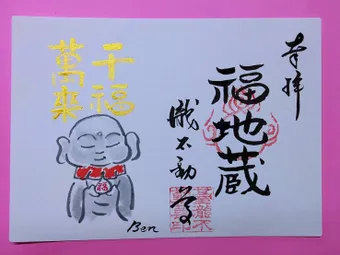 奉拝
福地蔵
瀧不動堂
千福
萬来
福
Ben